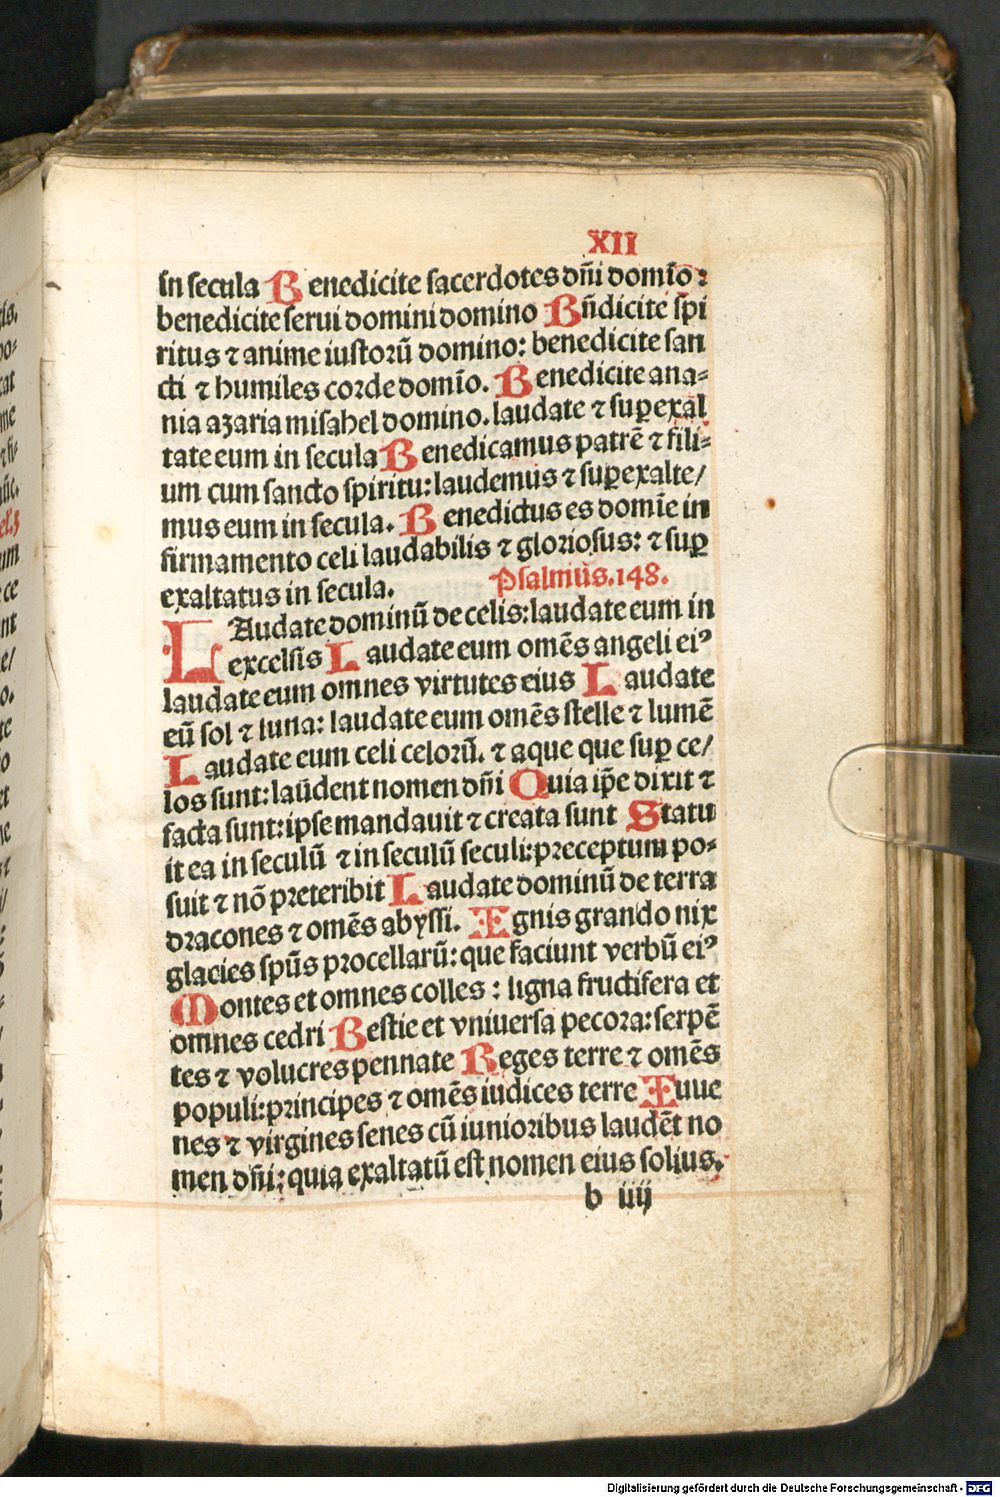 XII
in secula Benedicite sacerdotes dñi domīo:
benedicite serui domini domino Bñdicite spi
ritus ⁊ anime iustorū domino: benedicite san
cti ⁊ humiles corde domīo. Benedicite ana⸗
nia azaria misahel domino. laudate ⁊ suꝑexal
tate eum in secula Benedicamus patrē ⁊ fili⸗
um cum sancto spiritu: laudemus ⁊ suꝑexalte/
mus eum in secula. Benedictus es domīe in
firmamento celi laudabilis ⁊ gloriosus: ⁊ suꝑ
exaltatus in secula. Psalmus. 148.
LAudate dominū de celis: laudate eum in
excelsis Laudate eum omēs angeli eiꝰ
laudate eum omnes virtutes eius Laudate
eū sol ⁊ luna: laudate eum omēs stelle ⁊ lumē
Laudate eum celi celorū. ⁊ aque que suꝑ ce/
los sunt: laūdent nomen dñi Quia ip̄e dixit ⁊
facta sunt: ipse mandauit ⁊ creata sunt Statu
it ea in seculū ⁊ in seculū seculi: preceptum po⸗
suit ⁊ nō preteribit Laudate dominū de terra
dracones ⁊ omēs abyssi. Ignis grando nix
glacies spūs procellarū: que faciunt verbū eiꝰ
Montes et omnes colles: ligna fructifera et
omnes cedri Bestie et vniuersa pecora: serpē
tes ⁊ volucres pennate Reges terre ⁊ omēs
populi: principes ⁊ omēs iudices terre Iuue
nes ⁊ virgines senes cū iunioribus laudēt no
men dñi: quia exaltatū est nomen eius solius.
b iiij
is.
po⸗
cat
me
um
ce
nt
te
et
Digitalisierung gefördert durch die Deutsche Forschungsgemeinschaft - DFG